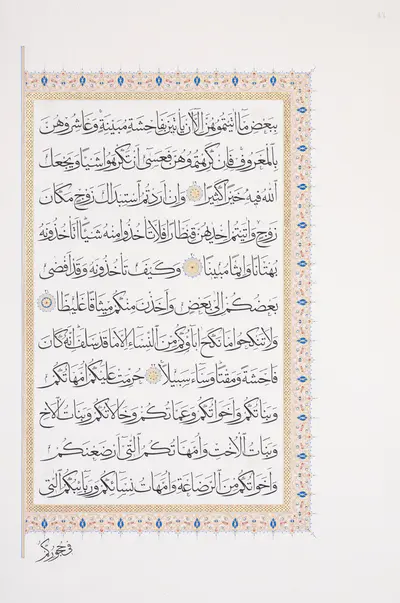 ببعض ما اتيتموهن الا ان ياتين بفاحشة مبينة وعاشروهن
بالمعروف فان كرهتموهن فعسى ان تكرهوا شيا ويجعل
الله فيه خيرا كثيرا وان اردتم استبدال زوج مكان
زوج واتيتم احديهن قنطارا فلا تاخذوا منه شيا اتاخذونه
بهتانا واثما مبينا وكيف تاخذونه وقد افضى
بعضكم الى بعض واخذن منكم ميثاقا غليظا
ولا تنكحوا ما نكح اباؤكم من النساء الا ما قد سلف انه كان
فاحشة ومقتا وساء سبيلا حرمت عليكم امهاتكم
وبناتكم واخواتكم وعماتكم وخالاتكم وبنات الاخ
وبنات الاخت وامهاتكم التي ارضعنكم
واخواتكم من الرضاعة وامهات نسائكم وربائبكم التي
في حجوركم